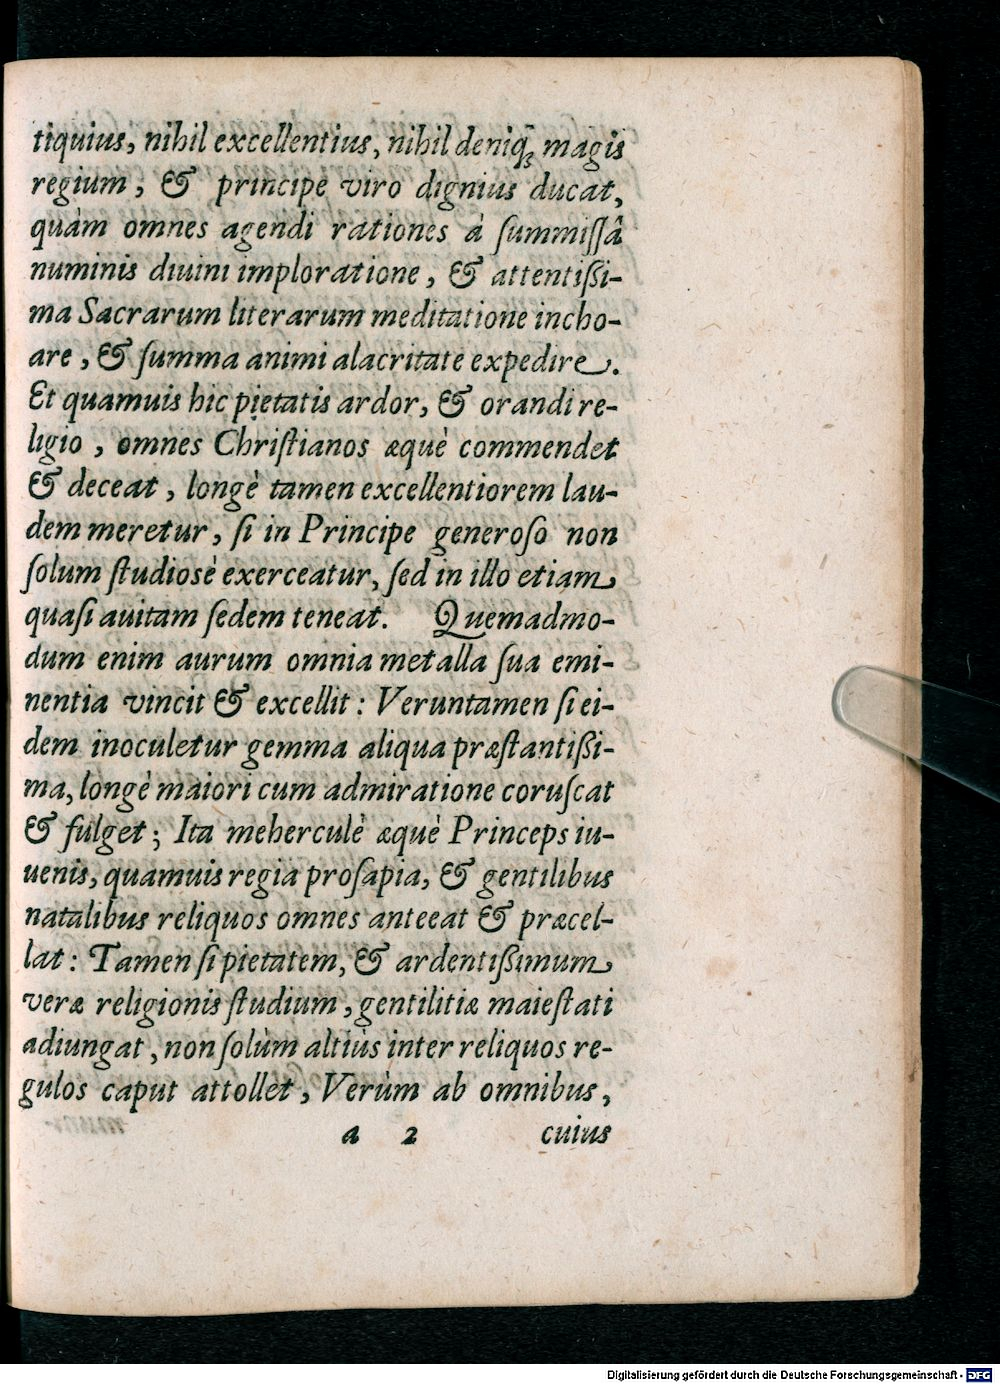 tiquius, nihil excellentius, nihil deniq́ꝫ magis
regium; & principe viro dignius ducat,
quàm omnes agendi rationes à ſummiſſâ
numinis diuini imploratione, & attentißi-
ma Sacrarum literarum meditatione incho-
are, & ſumma animi alacritate expedire.
Et quamuis hic pietatis ardor, & orandi re-
ligio, omnes Chriſtianos æquè commendet
& deceat, longè tamen excellentiorem lau-
dem meretur, ſi in Principe generoſo non
ſolum ſtudiosè exerceatur, ſed in illo etiam
quaſi auitam ſedem teneat. Quemadmo-
dum enim aurum omnia metalla ſua emi-
nentia vincit & excellit: Veruntamen ſi ei-
dem inoculetur gemma aliqua præſtantißi-
ma, longè maiori cum admiratione coruſcat
& fulget; Ita meherculè æquè Princeps iu-
uenis, quamuis regia proſapia, & gentilibus
natalibus reliquos omnes anteeat & præcel-
lat: Tamen ſi pietatem, & ardentißimum
veræ religionis ſtudium, gentilitiæ maieſtati
adiungat, non ſolùm altiùs inter reliquos re-
gulos caput attollet, Verùm ab omnibus,
a 2 cuius
Digitalisierung gefördert durch die Deutsche Forschungsgemeinschaft - DFG